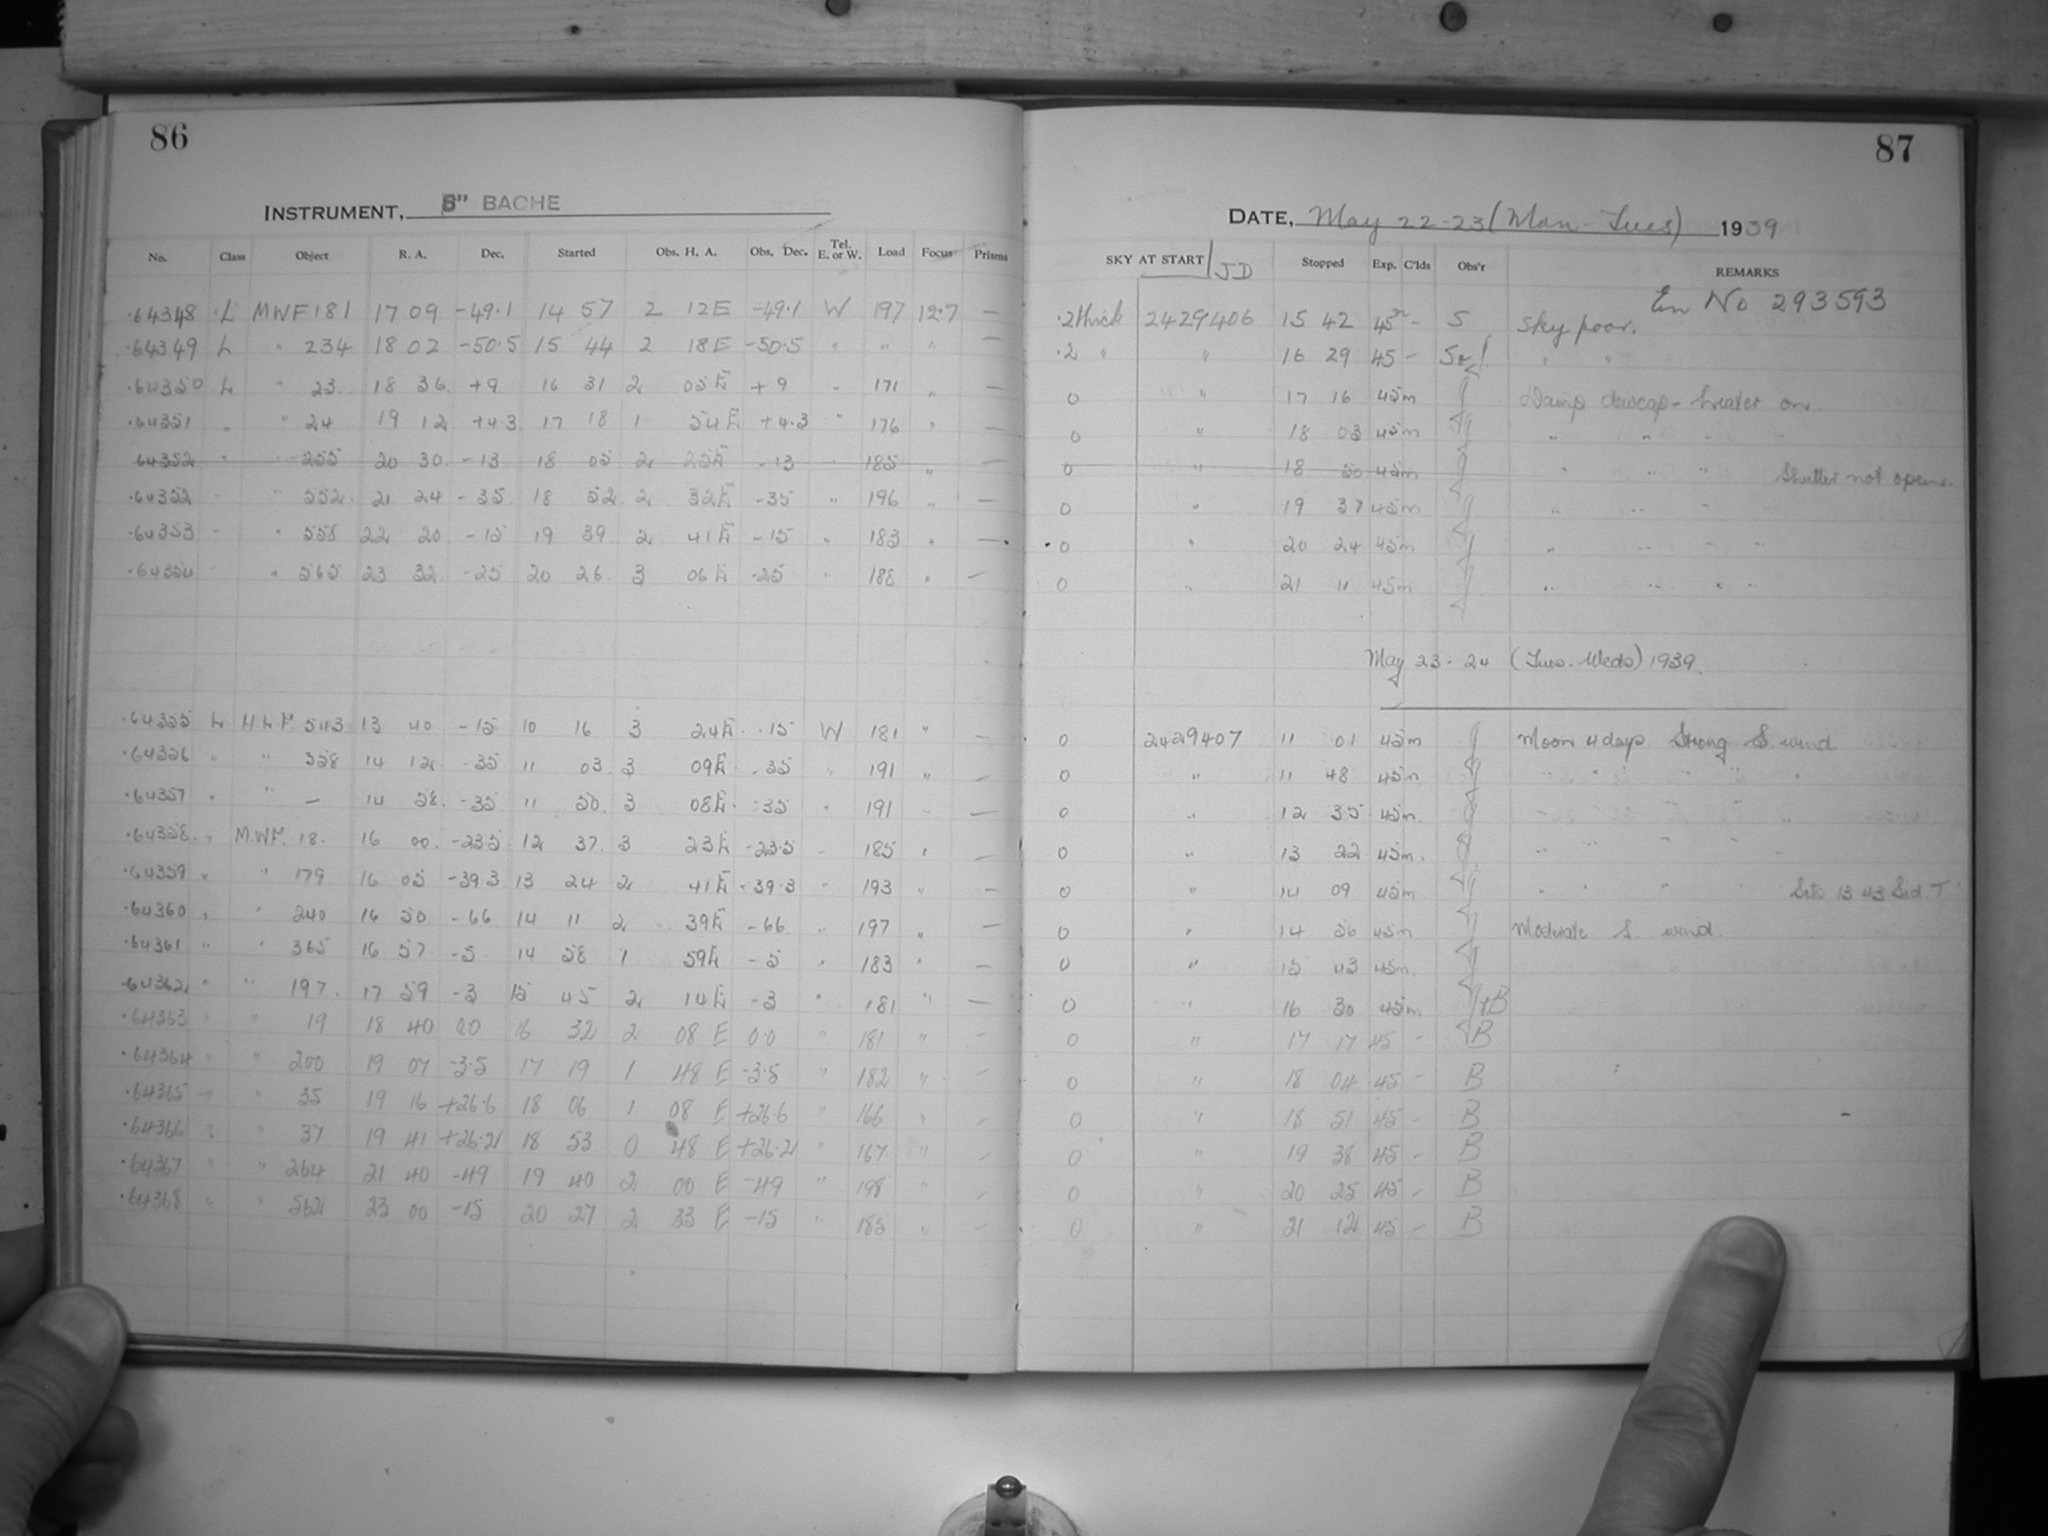 86
INSTRUMENT, 8" BACHE
No. Class Object R. A. Dec. Started Obs. H. A. Obs. Dec. Tel. E. or W. Load Focus Prisms
.64348 L MWF 181 17 09 -49.1 14 57 2 12E -49.1 W 197 12.7 —
.64349 L " 234 18 02 -50.5 15 44 2 18E -50.5 " " " —
.64350 L " 23 18 36 +9 16 31 2 05E +9 " 171 " —
.64351 " " 24 19 12 +4.3 17 18 1 54E +4.3 " 176 " —
.64352 " " 255 20 30 -13 18 05 2 25E -13 " 185 " —
.64352 - " 552 21 24 -35 18 52 2 32E -35 " 196 " —
.64353 - " 558 22 20 -15 19 39 2 41E -15 " 183 " —
.64354 " 565 23 32 -25 20 26 3 06E -25 " 188 " —
.64355 L H.L.F 543 13 40 -15 10 16 3 24E -15 W 181 "
.64356 " " 558 14 12 -35 11 03 3 09E -35 " 191 " —
.64357 " " — 14 58 -35 11 50 3 08E -35 " 191 " —
.64358 " M.WF. 18 16 00 -23.5 12 37 3 23E -23.5 - 185 " —
.64359 " " 179 16 05 -39.3 13 24 2 41E -39.3 " 193 " —
.64360 " " 240 16 50 -66 14 11 2 39E -66 " 197 " —
.64361 " " 365 16 57 -5 14 58 1 59E -5 " 183 " —
.64362 " " 197 17 59 -3 15 45 2 14E -3 " 181 " —
.64363 " " 19 18 40 0.0 16 32 2 08 E 0.0 " 181 " —
.64364 " " 200 19 07 -3.5 17 19 1 48 E -3.5 " 182 " —
.64365 " " 35 19 16 +26.6 18 06 1 08 E +26.6 " 166 " —
.64366 " " 37 19 41 +26.2 18 53 0 48 E +26.2 " 167 " —
.64367 " " 264 21 40 -49 19 40 2 00 E -49 " 198 " —
.64368 " " 562 23 00 -15 20 27 2 33 E -15 " 185 " —
87
DATE, May 22-23 (Mon-Tues) 1939
SKY AT START / JD Stopped Exp. C'lds Obs'r REMARKS
Em No 293593
.2 thick 2429406 15 42 45m - S Sky poor.
.2 " " 16 29 45 - " "
0 " 17 16 45m Damp dewcap - heater on.
0 " 18 03 45m " " " "
0 " 18 50 45m " " " Shutter not open.
0 " 19 37 45m " " "
0 " 20 24 45m " " " "
0 " 21 11 45m " " " "
May 23-24 (Tues. Weds) 1939.
0 2429407 11 01 45m Moon 4 days Strong S. wind
0 " 11 48 45m " " " " "
0 " 12 35 45m " " " " "
0 " 13 22 45m. " " " " "
0 " 14 09 45m " " " Sets 13 43 Sid. T
0 " 14 56 45m Moderate S. wind.
0 " 15 43 45m
0 " 16 30 45m +B
0 " 17 17 45 - B
0 " 18 04 45 - B
0 " 18 51 45 - B
0 " 19 38 45 - B
0 " 20 25 45 - B
0 " 21 12 45 - B